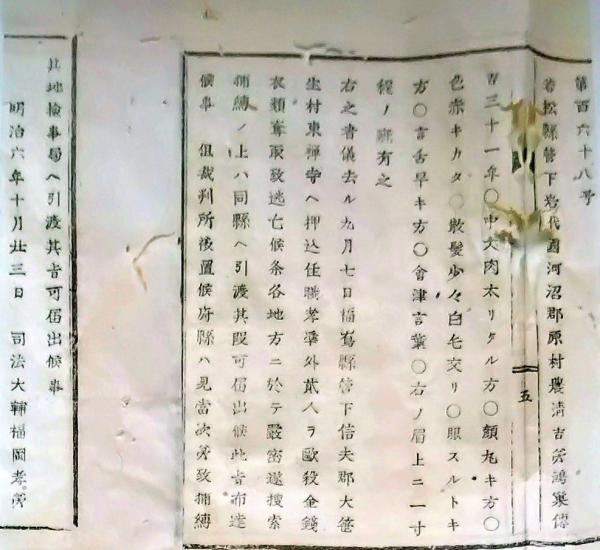 第百六十八号
若松縣管下岩代國河沼郡原村農清吉
三十一年〇中丈肉太リタル方〇顔丸キ方〇
色赤キカタ〇散髪少々白毛交リ〇眼スルトキ
方〇言舌早キ方〇會津言葉〇右ノ眉上ニ一寸
程ノ疵有之
右之者儀去ル九月七日福嶌縣管下信夫郡大笹
生村東禅寺ヘ押込住職孝準外貳人ヲ殴殺金錢
衣類奪取致逃亡候条各地方ニ於テ嚴密遂捜索
捕縛ノ上ハ同縣ヘ引渡其段可届出候此旨布達
候事 但裁判所被置候府縣ハ見當次第致捕縛
五
其地檢事局ヘ引渡其旨可届出候事
明治六年十月廿三日 司法大輔福岡孝弟